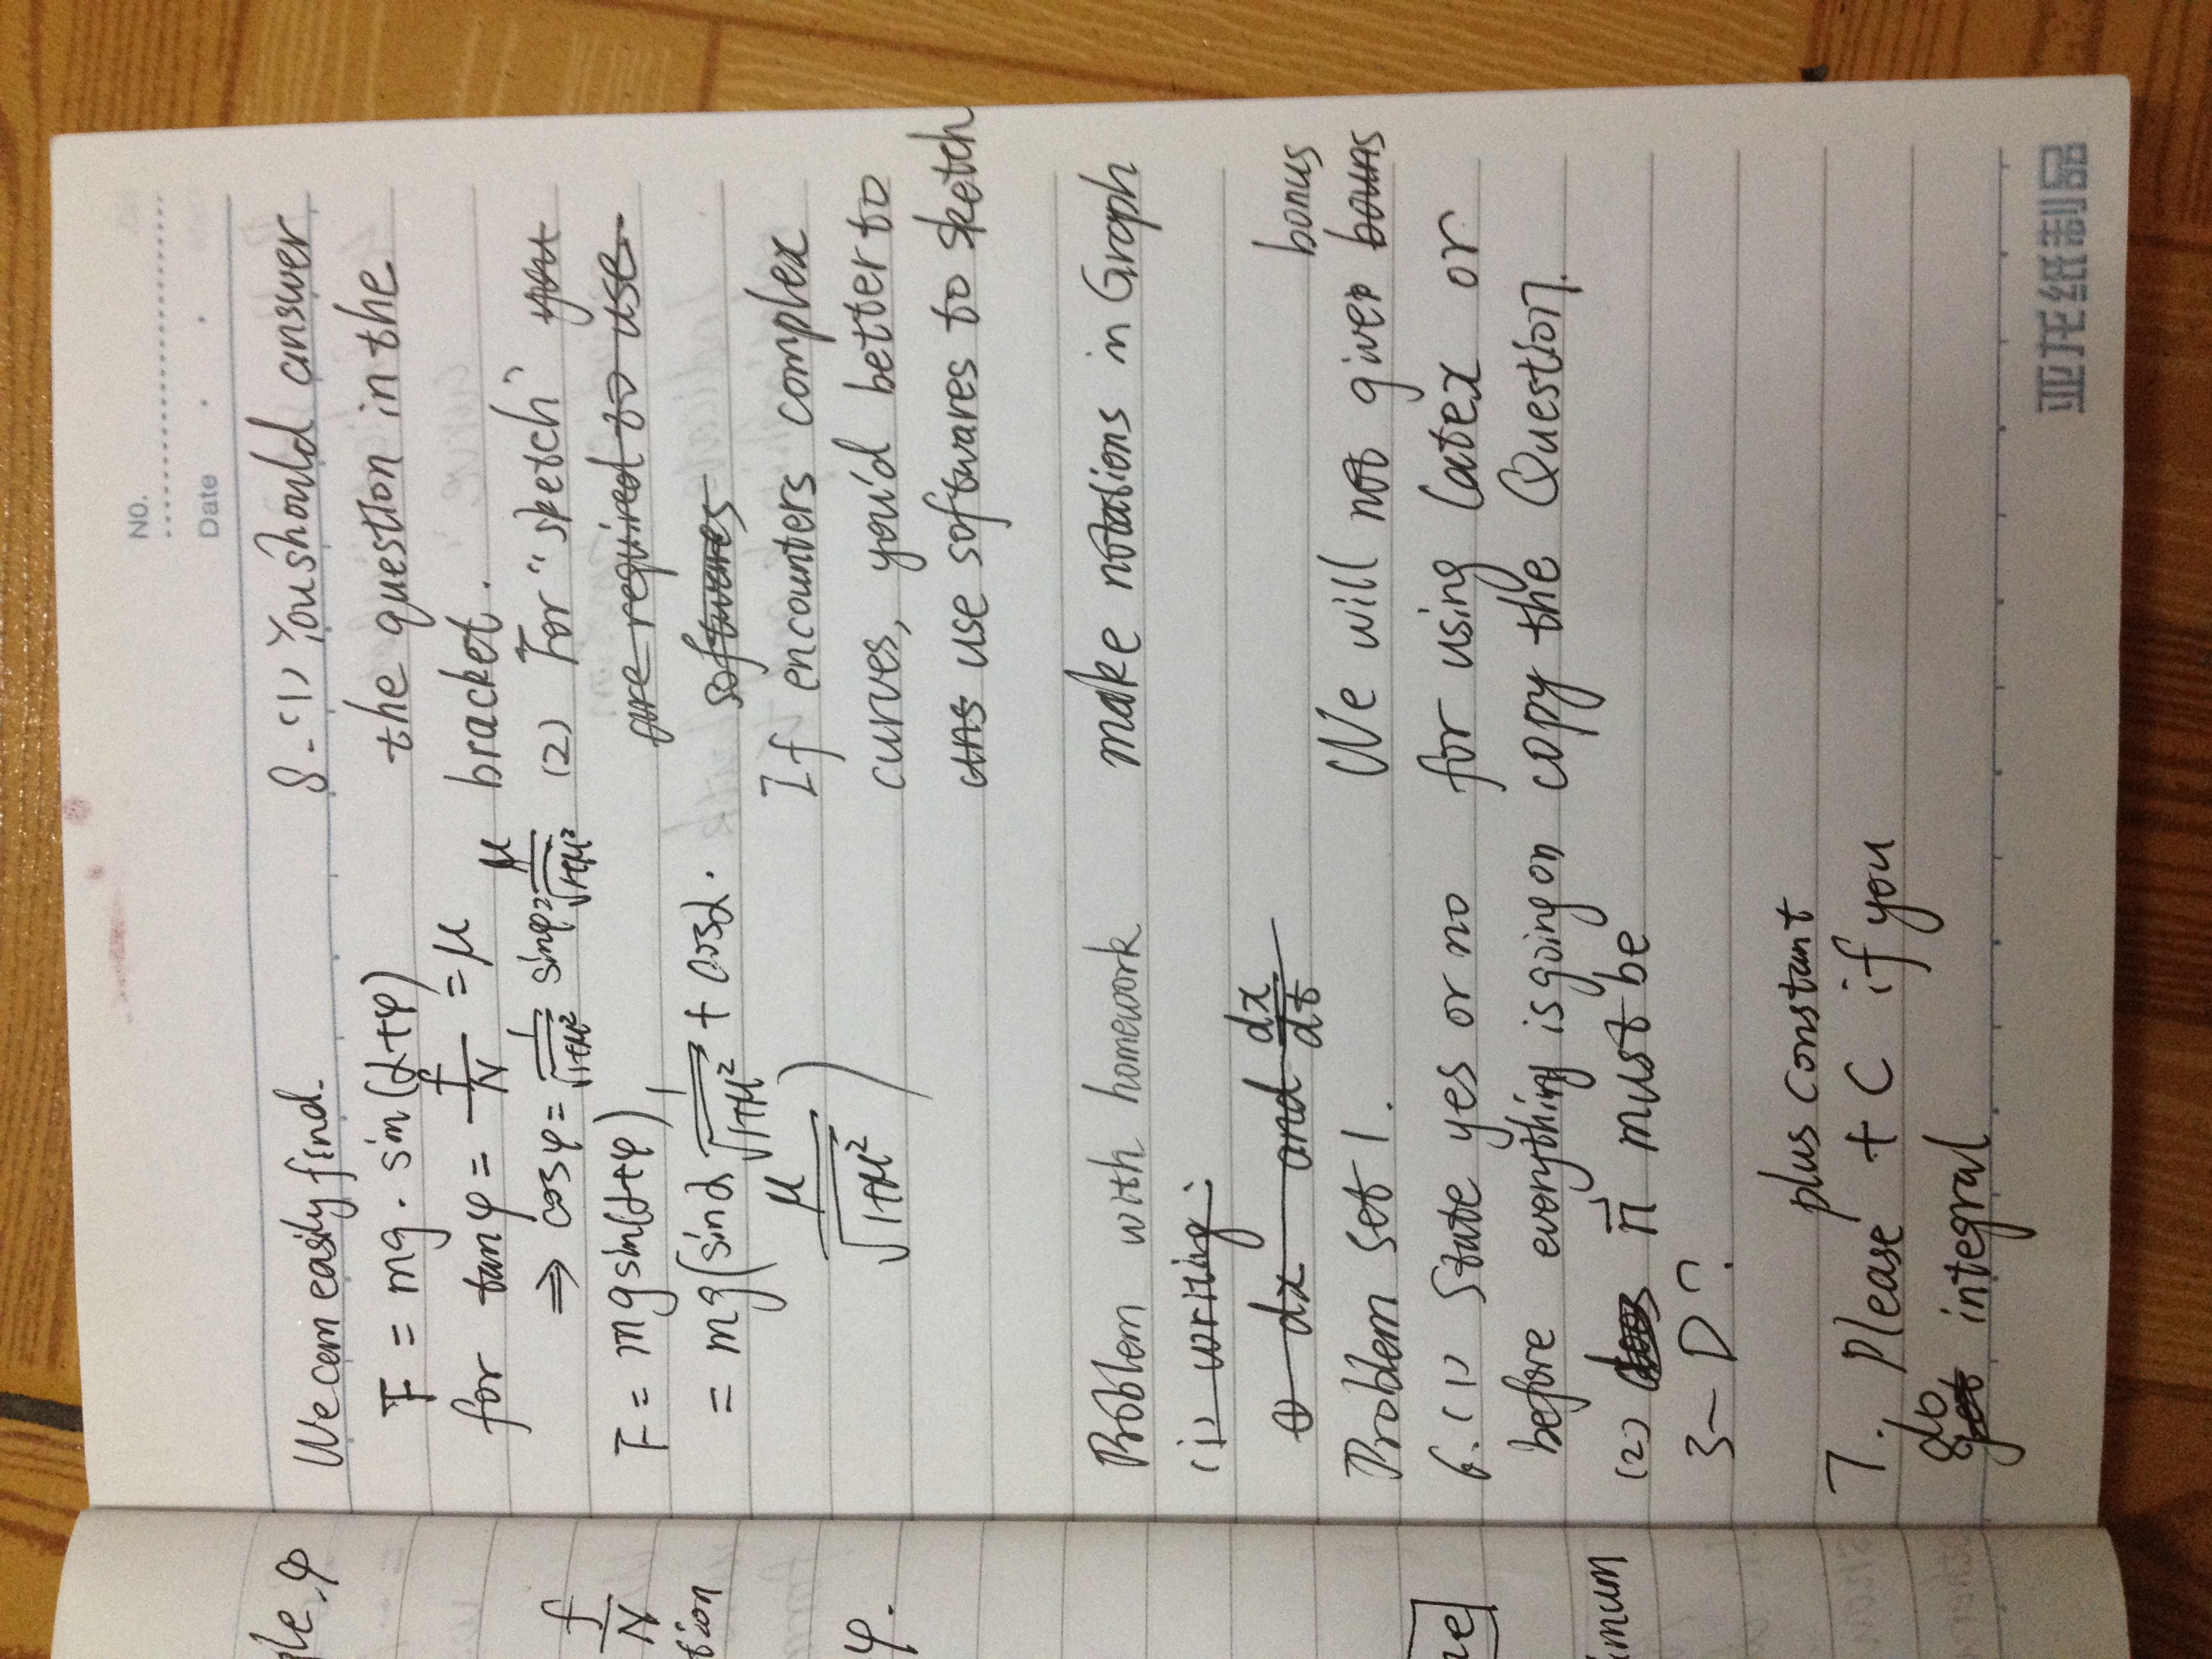 NO.
Date
gle φ
f
N
tion
φ.
imum
We can easily find.
F = mg. sin(α+φ)
for tanφ = f/N = μ
⇒ cosφ = 1/√1+μ² sinφ = μ/√1+μ²
F = mg sin(α+φ)
= mg(sinα 1/√1+μ² + cosα.
μ/√1+μ² )
Problem with homework
(1) writing:
① dx and dx/dt
Problem set 1.
6. (1) State yes or no
before everything is going on
(2) does n⃗ must be
3-D?
plus constant
7. Please + C if you
do
get integral
8. (1) You should answer
the question in the
bracket.
(2) For "sketch" you
are required to use
softwares
If encounters complex
curves, you'd better to
ans use softwares to sketch
make notations in Graph
bonus
We will not give bouns
for using latex or
copy the Question.
亚龙纸制品